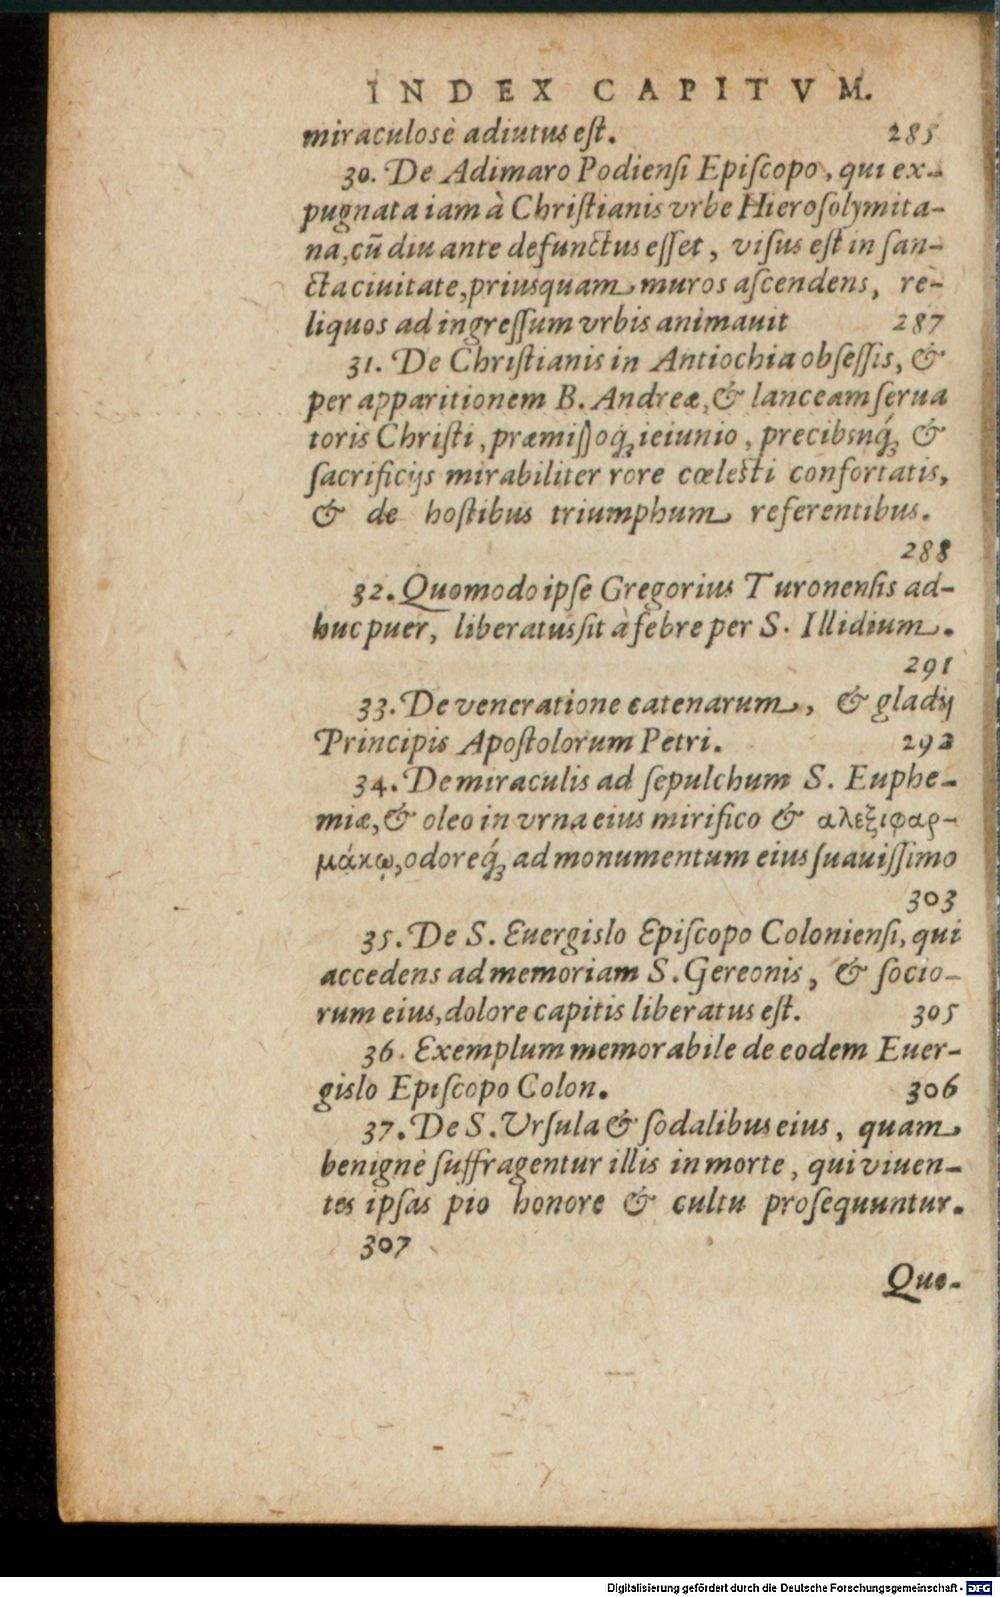 INDEX CAPITVM.
miraculosè adiutus eſt. 285
30. De Adimaro Podienſi Epiſcopo, qui ex-
pugnata iam à Chriſtianis vrbe Hieroſolymita-
na, cũ diu ante defunctus eſſet, viſus eſt in ſan-
cta ciuitate, priusquam muros aſcendens, re-
liquos ad ingreſſum vrbis animauit 287
31. De Chriſtianis in Antiochia obſeſſis, &
per apparitionem B. Andreæ, & lanceam ſerua
toris Chriſti, præmiſſoq́; ieiunio, precibusq́; &
ſacrificijs mirabiliter rore cœleſti confortatis,
& de hoſtibus triumphum referentibus.
288
32. Quomodo ipſe Gregorius Turonenſis ad-
huc puer, liberatus ſit à febre per S. Illidium.
291
33. De veneratione catenarum, & gladij
Principis Apoſtolorum Petri. 292
34. De miraculis ad ſepulchum S. Euphe-
miæ, & oleo in vrna eius mirifico & αλεξιφαρ-
μάκῳ, odoreq́; ad monumentum eius ſuauiſſimo
303
35. De S. Euergislo Epiſcopo Colonienſi, qui
accedens ad memoriam S. Gereonis, & ſocio-
rum eius, dolore capitis liberatus eſt. 305
36. Exemplum memorabile de eodem Euer-
gislo Epiſcopo Colon. 306
37. De S. Vrſula & ſodalibus eius, quam
benignè ſuffragentur illis in morte, qui viuen-
tes ipſas pio honore & cultu proſequuntur.
307
Quo-
Digitalisierung gefördert durch die Deutsche Forschungsgemeinschaft - DFG